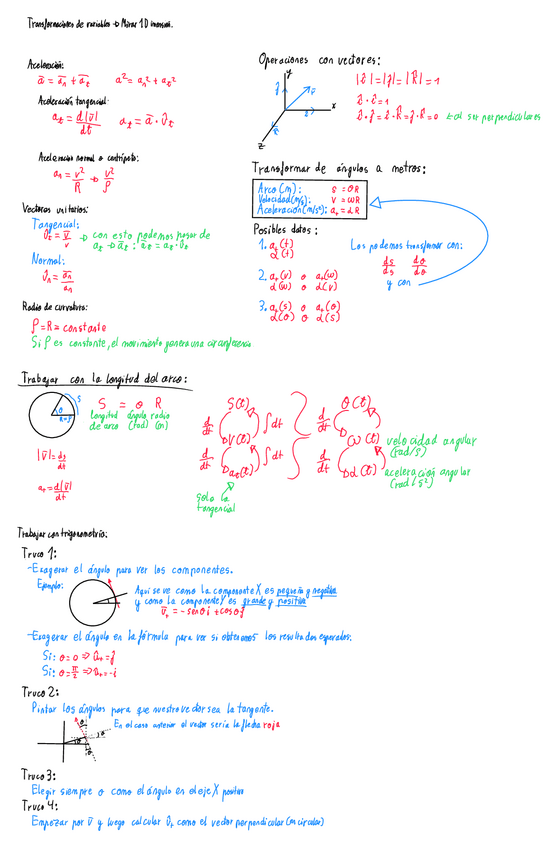 Transformaciones de variables → Mirar 1D inversión.
Aceleración:
ā = ān + āt   a² = an² + at²
Aceleración tangencial:
at = d|v̄|/dt   at = ā · ût
Aceleración normal o centrípeta:
an = v²/R → v²/ρ
Vectores unitarios:
Tangencial:
ût = v̄/v → con esto podemos pasar de
at → āt : āt = at · ût
Normal:
ûn = ān/an
Radio de curvatura:
ρ = R = constante
Si ρ es constante, el movimiento genera una circunferencia
Operaciones con vectores:
y
x
z
|î| = |ĵ| = |k̂| = 1
î · î = 1
î · ĵ = î · k̂ = ĵ · k̂ = 0 ← al ser perpendiculares
Transformar de ángulos a metros:
Arco (m): s = θR
Velocidad (m/s): v = ωR
Aceleración (m/s²): at = αR
Posibles datos:
1. at(t)
α(t)
2. at(v) o at(ω)
α(ω) o α(v)
3. at(s) o at(θ)
α(θ) o α(s)
Los podemos transformar con:
ds/ds dθ/dθ
y con
Trabajar con la longitud del arco:
S = θ R
longitud de arco ángulo (rad) radio (m)
|v̄| = ds/dt
at = d|v̄|/dt
S(t)
d/dt v(t) ∫dt
d/dt at(t) ∫dt
solo la
tangencial
θ(t)
d/dt ω(t) velocidad angular
(rad/s)
d/dt α(t) aceleración angular
(rad/s²)
Trabajar con trigonometría:
Truco 1:
-Exagerar el ángulo para ver los componentes.
Ejemplo:
Aquí se ve como la componente X es pequeña y negativa
y como la componente Y es grande y positiva
ūt = -senθ i + cosθ j
-Exagerar el ángulo en la fórmula para ver si obtenemos los resultados esperados:
Si: θ = 0 ⇒ ût = ĵ
Si: θ = π/2 ⇒ ût = -i
Truco 2:
Pintar los ángulos para que nuestro vector sea la tangente.
En el caso anterior el vector sería la flecha roja
Truco 3:
Elegir siempre θ como el ángulo en el eje X positivo
Truco 4:
Empezar por v̄ y luego calcular ût como el vector perpendicular (m circular)